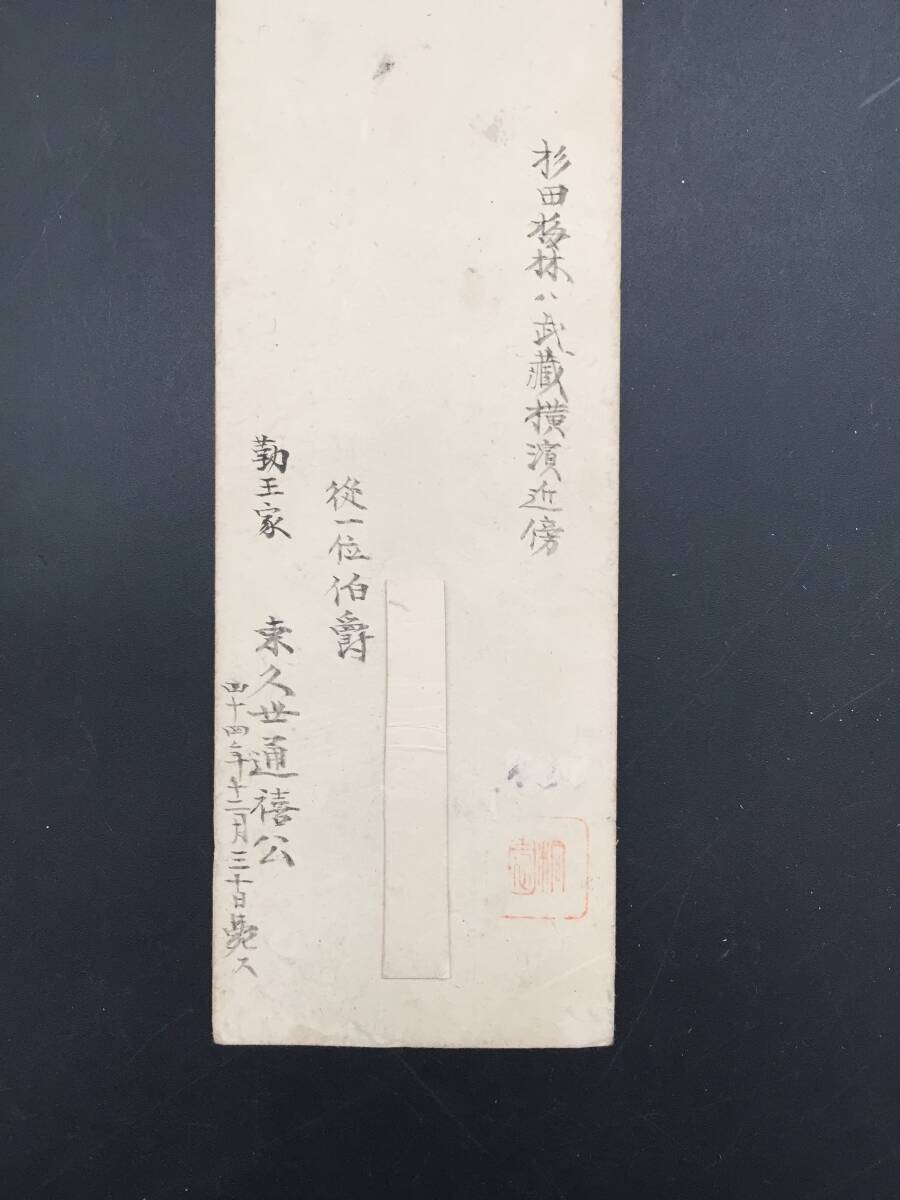 杉田梅林ハ武藏横濱近傍
從一位伯爵
勤王家 東久世通禧公
四十四年十二月三十日薨ス